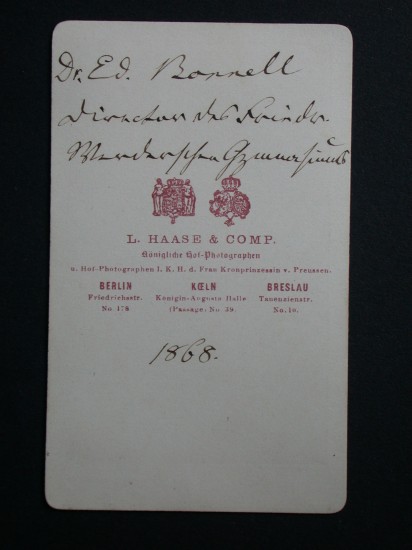 Dr. Ed. Bonnell
Director des Friedr.
Werderschen Gymnasiums
L. HAASE & COMP.
Königliche Hof-Photographen
u. Hof-Photographen I. K. H. d. Frau Kronprinzessin v. Preussen.
BERLIN KŒLN BRESLAU
Friedrichsstr. Königin-Augusta Halle Tauenzienstr.
No. 178 (Passage. No 39.
1868.